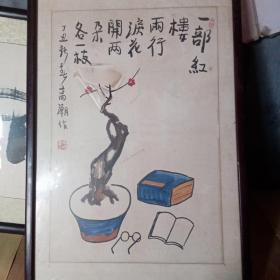 一部紅
樓
兩行
淚花
開兩
朵
各一枝
丁丑新春